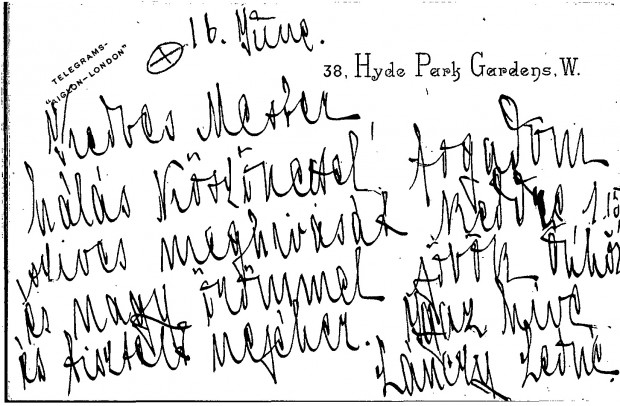 16. June.
TELEGRAMS-
"AIGLON-LONDON"
38, Hyde Park Gardens, W.
Kedves Mester
hálás köszönettel fogadom
szives meghivását Keddre 1.15
és nagy örömmel jövök Önhöz
és tisztelt nejéhez. Igaz hive
Lánczy Leóné.